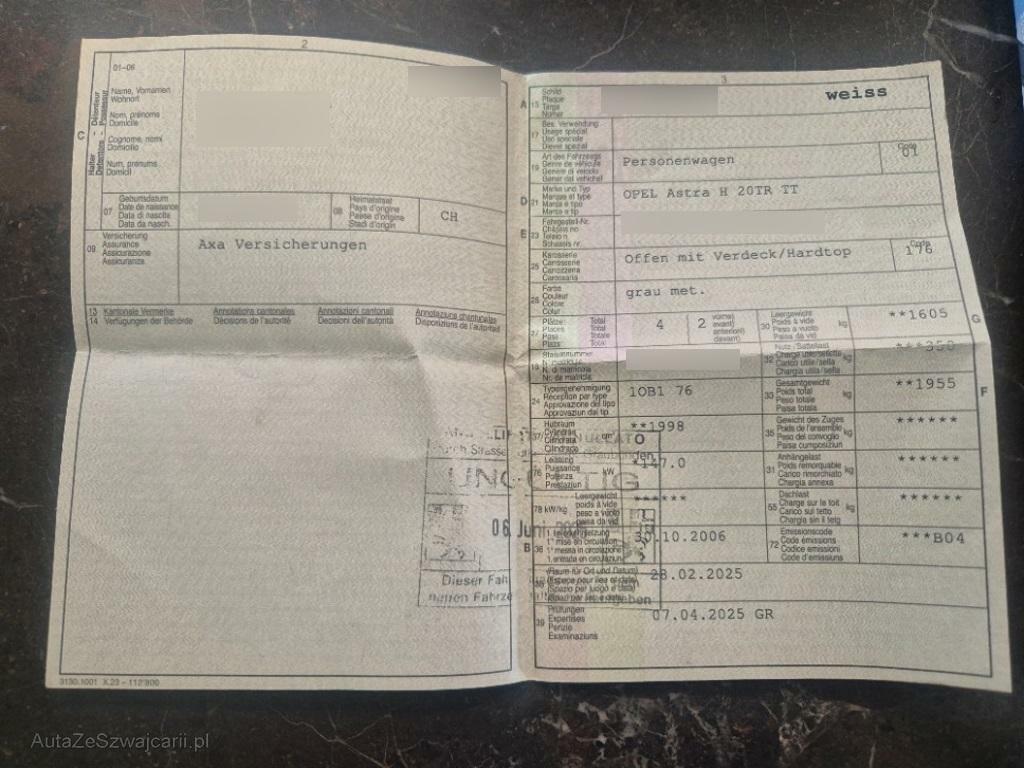 2
01-06
Name, Vornamen
Wohnort
Nom, prénoms
Domicile
Cognome, nomi
Domicilio
Num, prenums
Domicil
C
Halter
Détenteur
07
Geburtsdatum
Date de naissance
Data di nascita
Data da nasch.
08
Heimatstaat
Pays d'origine
Paese d'origine
Stadi d'origin
CH
09
Versicherung
Assurance
Assicurazione
Assicuranza
Axa Versicherungen
13 Kantonale Vermerke
Annotations cantonales
Annotazioni cantonali
Annotaziuns chantunalas
14 Verfügungen der Behörde
Décisions de l'autorité
Decisioni dell'autorità
Disposiziuns da l'autoritad
3130.1001 X.23 - 112'900
3
A 15
Schild
Plaque
Targa
Numer
weiss
17
Bes. Verwendung
Usage spécial
Uso speciale
Diever spezial
19
Art des Fahrzeugs
Genre de véhicule
Genere di veicolo
Gener dal vehichel
Personenwagen
Code
01
D 21
Marke und Typ
Marque et type
Marca e tipo
Marca e tip
OPEL Astra H 20TR TT
E 23
Fahrgestell-Nr.
Châssis no
Telaio n.
Schassis nr.
25
Karosserie
Carrosserie
Carrozzeria
Carossaria
Offen mit Verdeck/Hardtop
Code
176
26
Farbe
Couleur
Colore
Colur
grau met.
27
Plätze: Total
Places Total
Posti Totale
Plazs Total
4
2
vorne)
avant)
anteriori)
davant)
30
Leergewicht
Poids à vide
Peso a vuoto
Paisa da vid
kg
**1605
G
18
Stammnummer
N. di matricola
Nr. da matricla
32
Nutz-/Sattellast
Charge utile/sellette
Carico utile/sella
Chargia utila/sella
kg
***350
24
Typengenehmigung
Réception par type
Approvazione del tipo
Approvaziun dal tip
1OB1 76
33
Gesamtgewicht
Poids total
Peso totale
Paisa totala
kg
**1955
F
Hubraum
Cylindrée
Cilindrata
Cilindrada
cm³
**1998
35
Gewicht des Zuges
Poids de l'ensemble
Peso del convoglio
Paisa cumposiziun
kg
******
76
Leistung
Puissance
Potenza
Prestaziun
kW
*147.0
31
Anhängelast
Poids remorquable
Carico rimorchiato
Chargia annexa
kg
******
78 kW/kg
Leergewicht
poids à vide
peso a vuoto
paisa da vid
******
55
Dachlast
Charge sur le toit
Carico sul tetto
Chargia sin il tetg
kg
******
B 36
1. Inverkehrsetzung
1re mise en circulation
1a messa in circolazione
1. entrada en circulaziun
30.10.2006
72
Emissionscode
Code émissions
Codice emissioni
Code d'emissiuns
***B04
38
(Raum für Ort und Datum)
(Espace pour lieu et date)
(Spazio per luogo e data)
28.02.2025
39
Prüfungen
Expertises
Perizie
Examinaziuns
07.04.2025 GR
06. Juni 2025
Dieser Fah
AutaZeSzwajcarii.pl